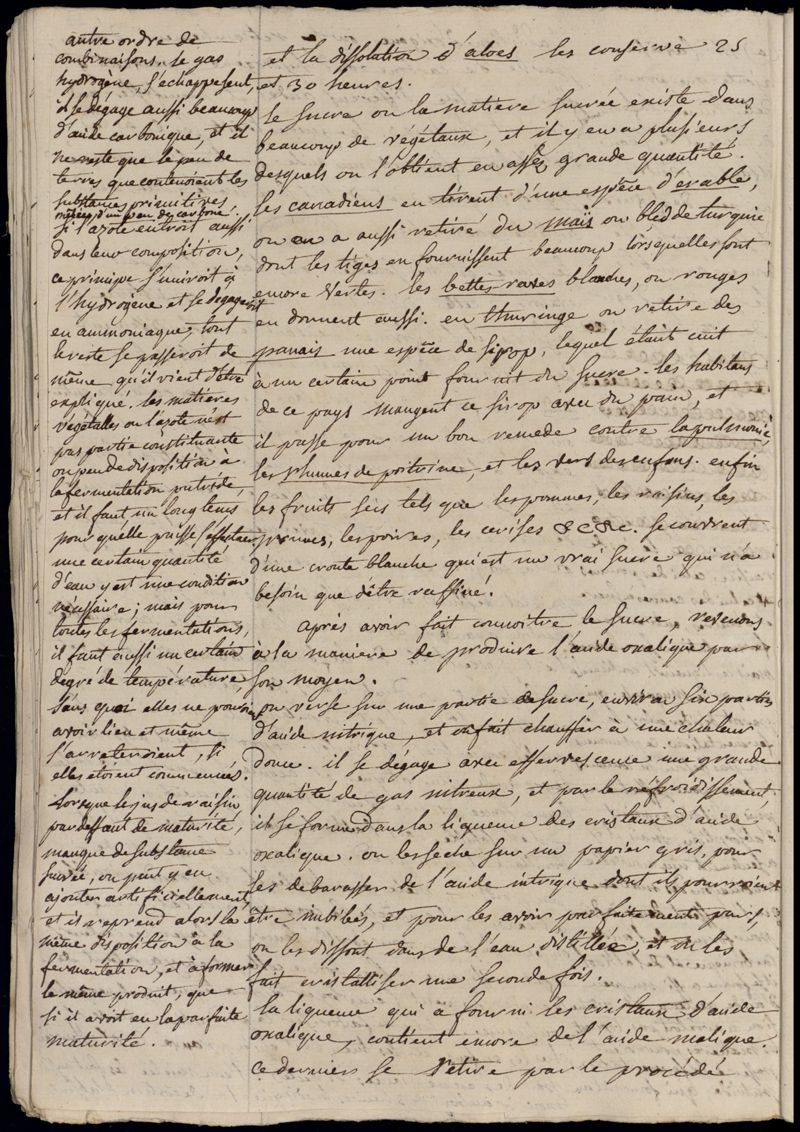 autre ordre de
combinaisons. le gas
hydrogène, s'échappesent,
il se dégage aussi beaucoup
d'acide carbonique, et il
ne reste que le peu de
terres que contenoient les
substances primitives,
mêlées d'un peu de carbone.
si l'azote entroit aussi
dans leur composition,
ce principe s'uniroit à
l'hydrogène et se dégageroit
en ammoniaque, tout
le reste se passeroit de
même qu'il vient d'être
expliqué. les matieres
végétalles ou l'azote n'est
pas partie constituante
ont peu de disposition à
la fermentation putride,
et il faut un long tems
pour quelle puisse s'effectuer
une certain quantité
d'eau y est une condition
nécessaire; mais pour
toutes les fermentations,
il faut aussi un certain
degré de température,
sans quoi elles ne pouroient
avoir lieu et même
s'arreteroient, si
elles étoient commencées.
Lorsque le jus de raisin
par deffaut de maturité,
manque de substance
sucrée, on peut y en
ajouter artificiellement,
et il reprend alors la
même disposition à la
fermentation, et à former
le même produit, que
si il avoit eu la parfaite
maturité.
et la dissolution d'aloes les conserve 25
et 30 heures.
le sucre ou la matiere sucrée existe dans
beaucoup de végétaux, et il y en a plusieurs
desquels on l'obtient en assés grande quantité.
les canadiens en tirent d'une espèce d'erable,
on en a aussi retiré du maïs ou bled de turquie
dont les tiges en fournissent beaucoup lorsquelles sont
encore vertes. les bettes-raves blanches, ou rouges
en donnent aussi. en thuringe on retire des
panais une espèce de sirop, lequel étant cuit
à un certain point fournit du sucre. les habitans
de ce pays mangent ce sirop avec du pain, et
il passe pour un bon remede contre la pulmonie,
les rhumes de poitrine, et les vers des enfans. enfin
les fruits secs tels que les pommes, les raisins, les
prunes, les poires, les cerises &c &c. se couvrent
d'une croute blanche qui est un vrai sucre qui n'a
besoin que d'être raffiné.
après avoir fait connoitre le sucre, revenons
à la maniere de produire l'acide oxalique par
son moyen.
on verse sur une partie de sucre, environ six parties
d'acide nitrique, et on fait chauffer à une chaleur
douce. il se dégage avec effervescence une grande
quantité de gas nitreux, et par le réfroidissement,
il se forme dans la liqueure des cristaux d'acide
oxalique. on les sèche sur un papier gris, pour
les debarasser de l'acide nitrique dont ils pourroient
être imbibés, et pour les avoir parfaitements purs,
on les dissout dans de l'eau distillée, et on les
fait cristalliser une seconde fois.
la liqueure qui a fourni les cristaux d'acide
oxalique, contient encore de l'acide malique.
ce derniers se retire par le procédé